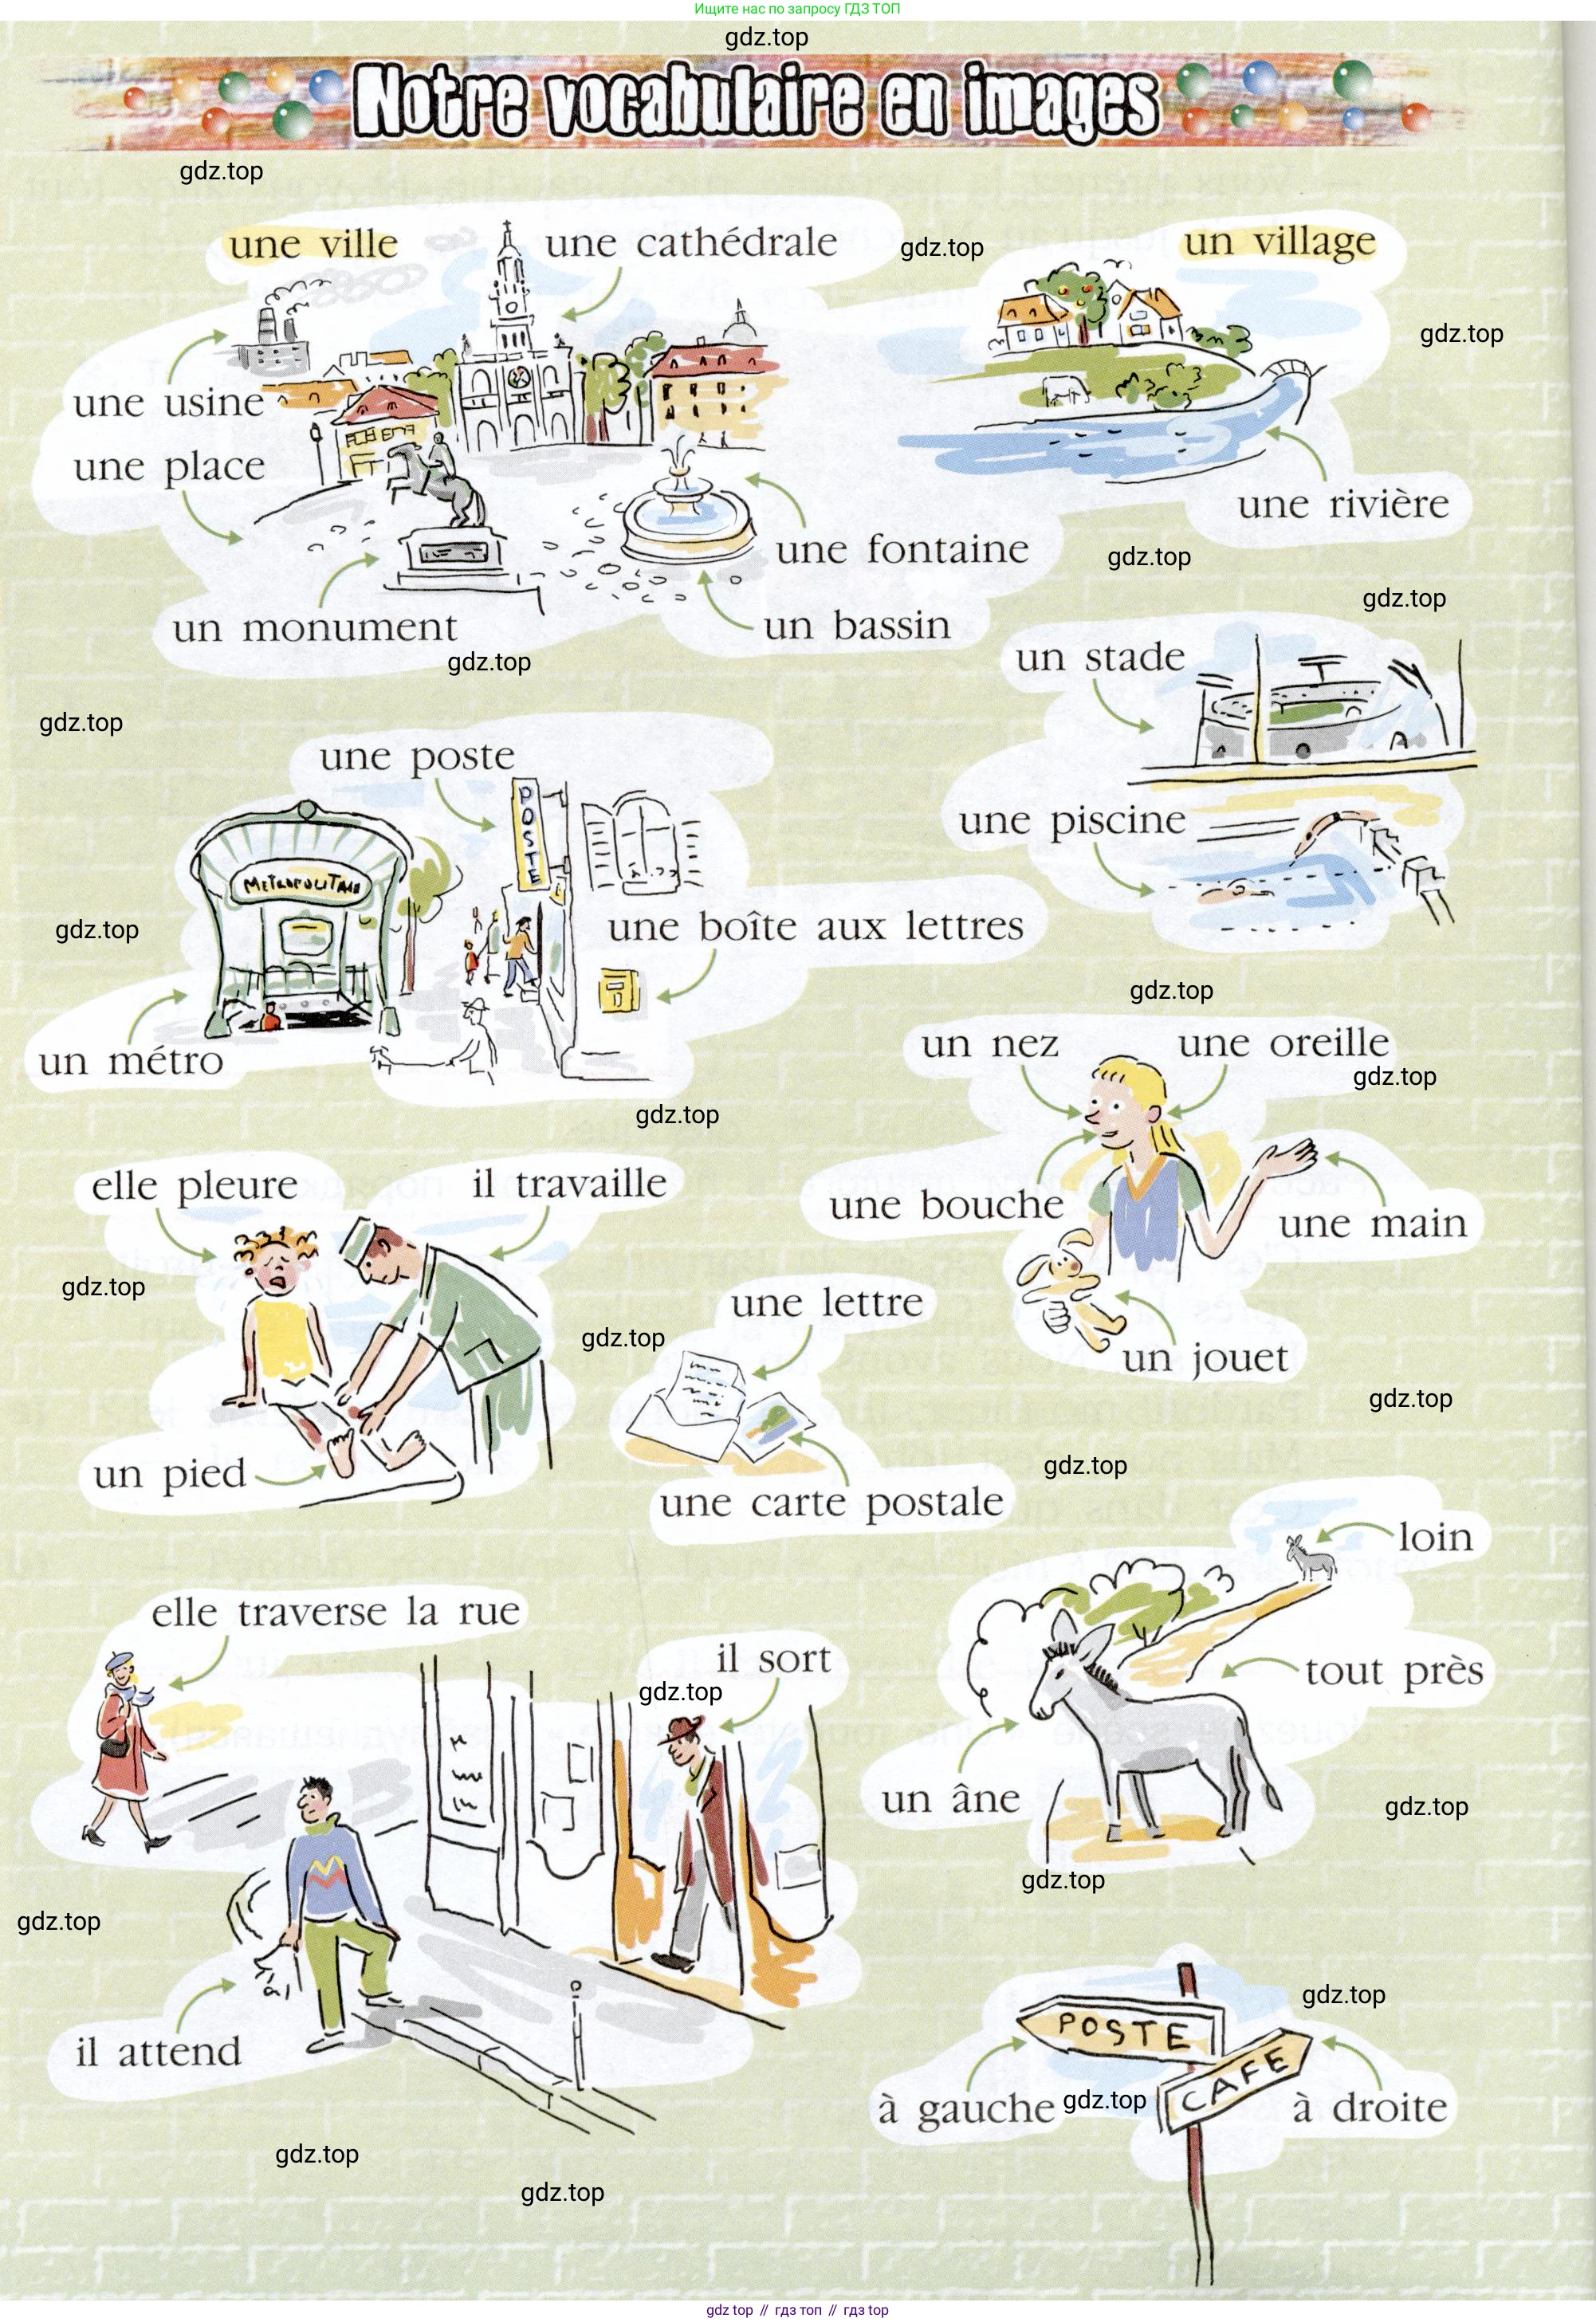 Ищите нас по запросу ГДЗ ТОП
gdz.top
Notre vocabulaire en images
gdz.top
une ville
une cathédrale
gdz.top
un village
gdz.top
une usine
une place
une rivière
une fontaine
gdz.top
gdz.top
un monument
un bassin
gdz.top
un stade
gdz.top
une poste
POSTE
une piscine
METROPOLITAIN
gdz.top
une boîte aux lettres
gdz.top
un métro
un nez
une oreille
gdz.top
gdz.top
elle pleure
il travaille
une bouche
une main
gdz.top
une lettre
gdz.top
un jouet
gdz.top
un pied
gdz.top
une carte postale
loin
elle traverse la rue
il sort
gdz.top
tout près
un âne
gdz.top
gdz.top
gdz.top
gdz.top
POSTE
il attend
CAFE
à gauche
gdz.top
à droite
gdz.top
gdz.top
gdz top // гдз топ // гдз top